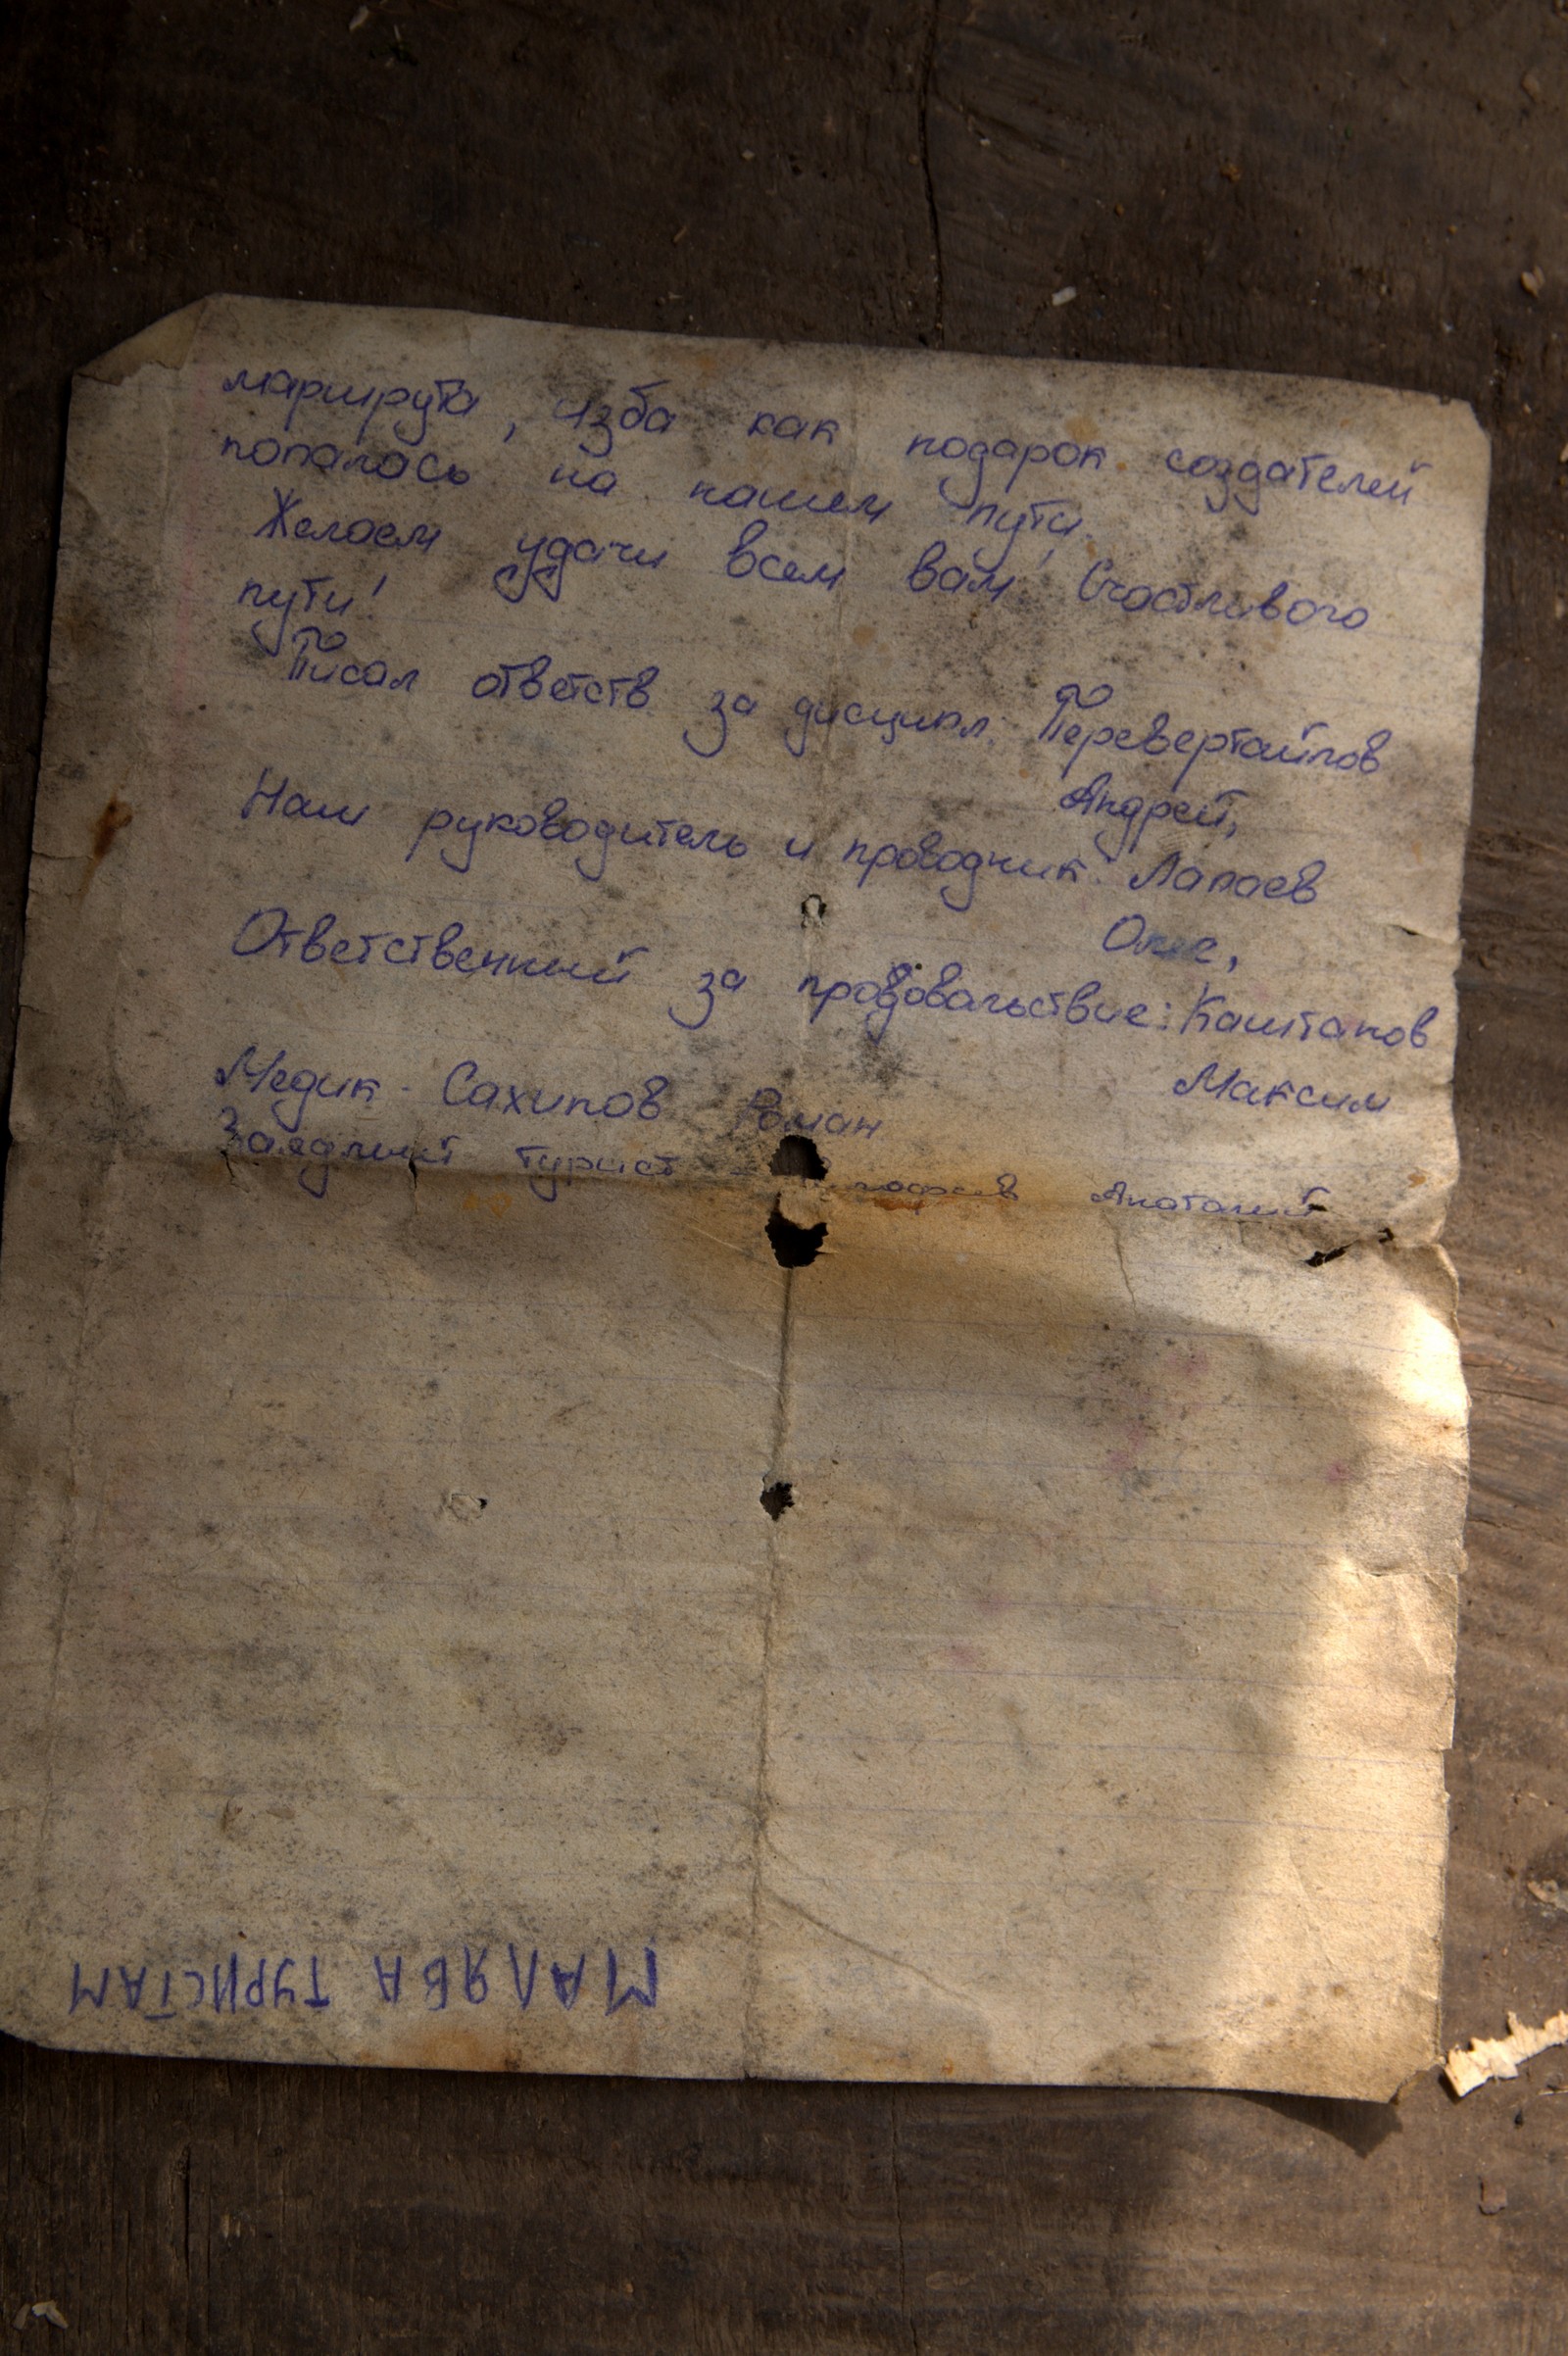 маршрута, изба как подарок создателей
попалась на нашем пути.
Желаем удачи всем вам! Счастливого
пути!
Писал ответств за дисципл: Перевертайлов
Андрей,
Наш руководитель и проводник: Лапаев
Олег,
Ответственный за продовольствие: Каштанов
Максим
Медик - Сахипов Роман
Заядлый турист - Анатолий
МАЛЯВА ТУРИСТАМ